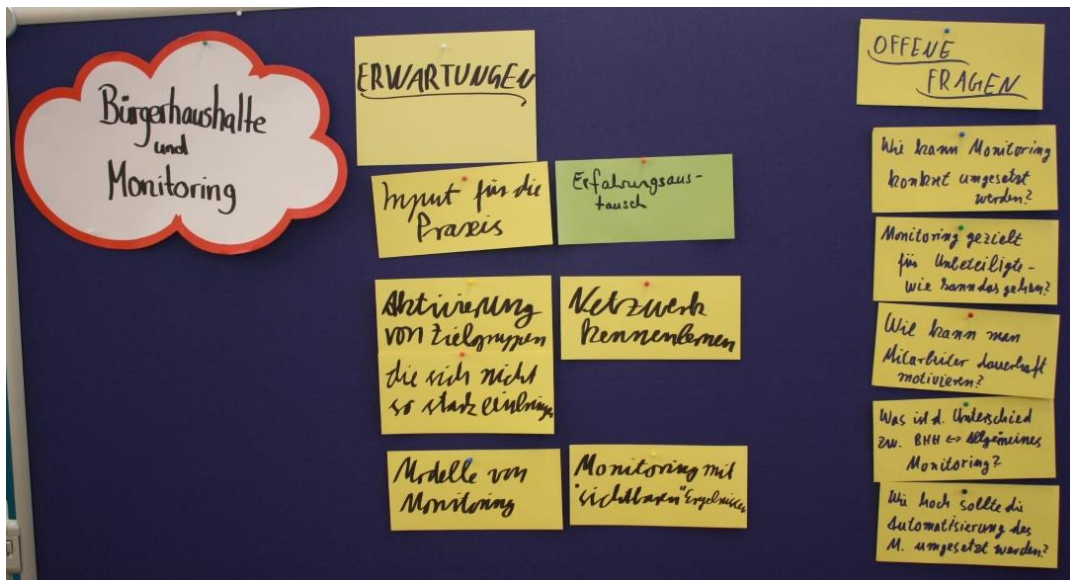 Bürgerhaushalte
und
Monitoring
ERWARTUNGEN
Input für die
Praxis
Erfahrungsaus-
tausch
Aktivierung
von Zielgruppen
die sich nicht
so stark einbringen
Netzwerk
kennenlernen
Modelle von
Monitoring
Monitoring mit
"sichtbaren" Ergebnissen
OFFENE
FRAGEN
Wie kann Monitoring
konkret umgesetzt
werden?
Monitoring gezielt
für Unbeteiligte -
wie kann das gehen?
Wie kann man
Mitarbeiter dauerhaft
motivieren?
Was ist d. Unterschied
zw. BHH ↔ Allgemeines
Monitoring?
Wie hoch sollte die
Automatisierung des
M. umgesetzt werden?